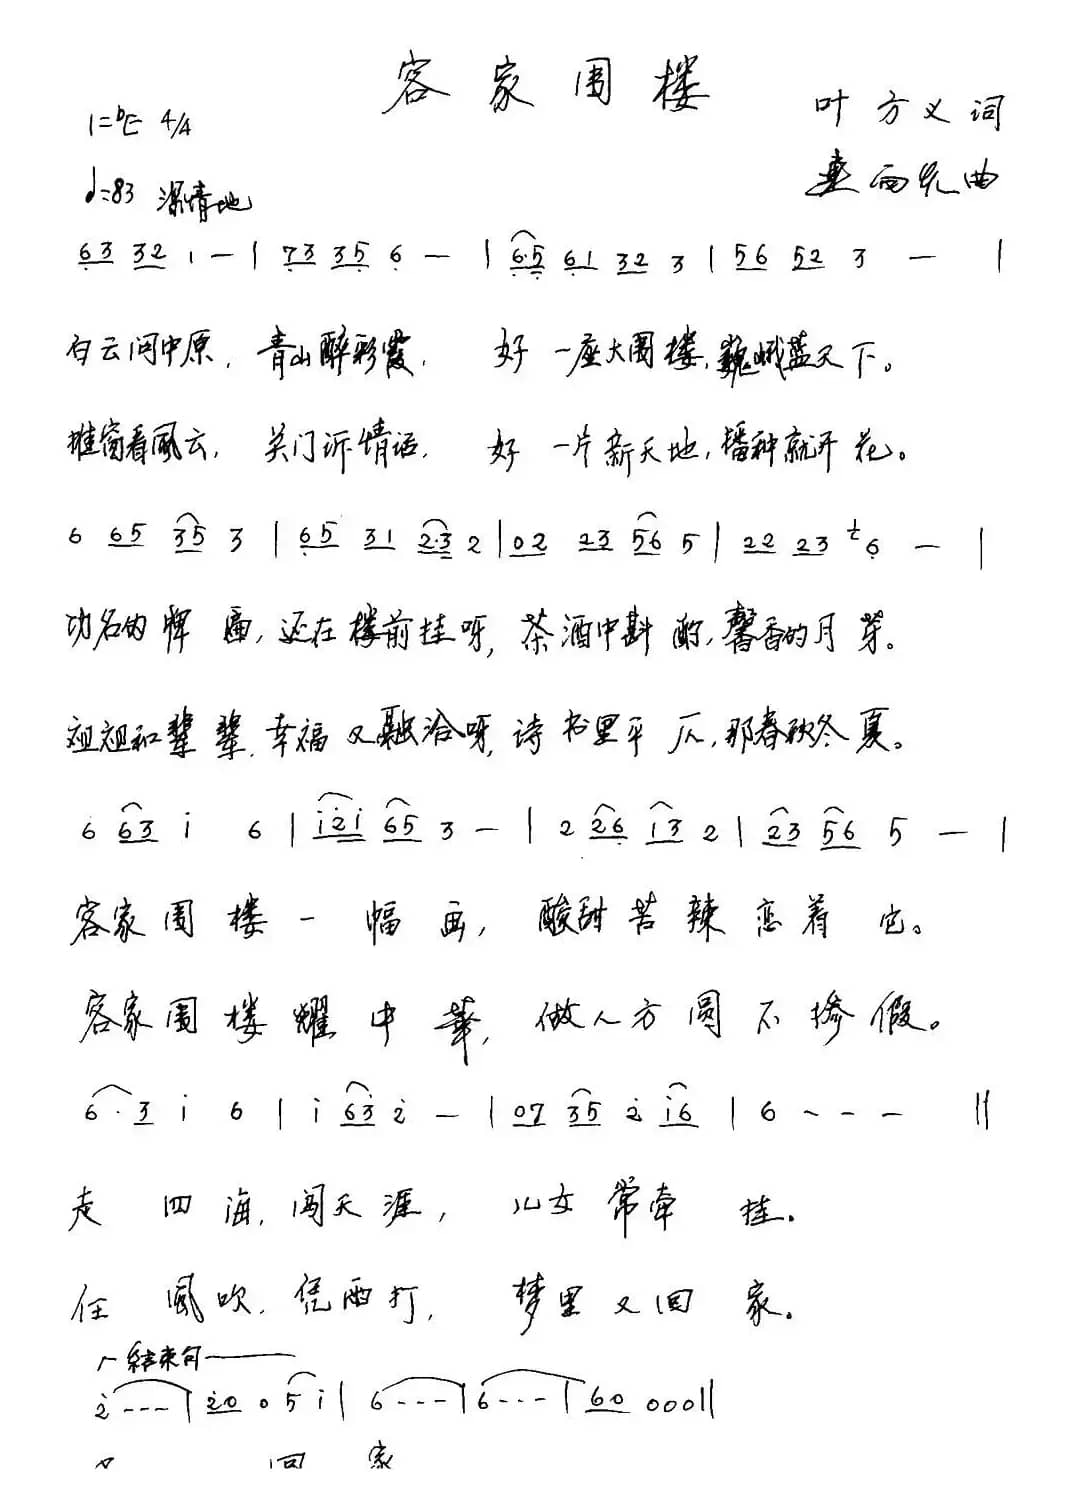 客家围楼
1=♭E 4/4
叶方义词
♩=83 深情地
雨 曲
6̣3 32 1 — | 7̣3 35̣ 6̣ — | 6̣·5̣ 6̣1 32 3 | 5̣6̣ 5̣2 3 — |
白云问中原，青山醉彩霞，好一座大围楼，巍峨蓝天下。
推窗看風云，关门诉情话，好一片新天地，播种就开花。
6 65 35 3 | 65 31 2·3 2 | 02 23 56 5 | 22 23 6̣ — |
功名的牌匾，还在楼前挂呀，茶酒中斟酌，馨香的月芽。
翅翅和辈辈，幸福又融洽呀，诗书里平仄，那春秋冬夏。
6 63 i 6 | i2̇i 65 3 — | 2 26̣ 13 2 | 23 56 5 — |
客家围楼一幅画，酸甜苦辣恋着它。
客家围楼耀中華，做人方圆不掺假。
6·3 i 6 | i 63 2̇ — | 07 35 2̇ i6 | 6 - - - ‖
走四海，闯天涯，儿女常牵挂。
任風吹，凭雨打，梦里又回家。
结束句
2̇ - - - | 2̇0 0 5 i | 6 - - - | 6 - - - | 60 000 ‖
又 回 家